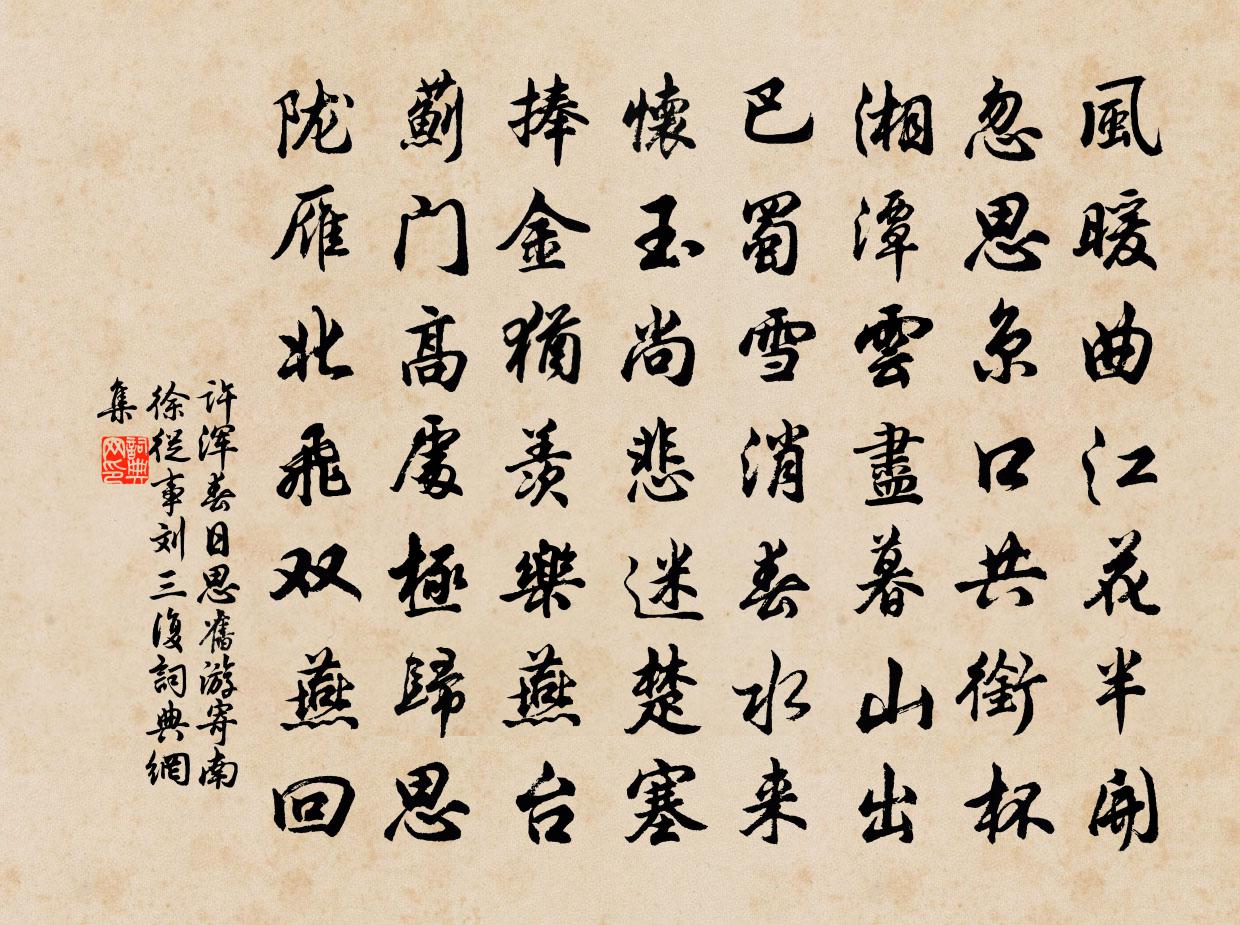 風暖曲江花半開
忽思京口共銜杯
湘潭雲盡暮山出
巴蜀雪消春水来
懷玉尚悲迷楚塞
捧金猶羨樂燕台
薊门高處極歸思
陇雁北飛双燕回
许浑春日思舊游寄南
徐從事刘三復詞典網
集
詞典网印